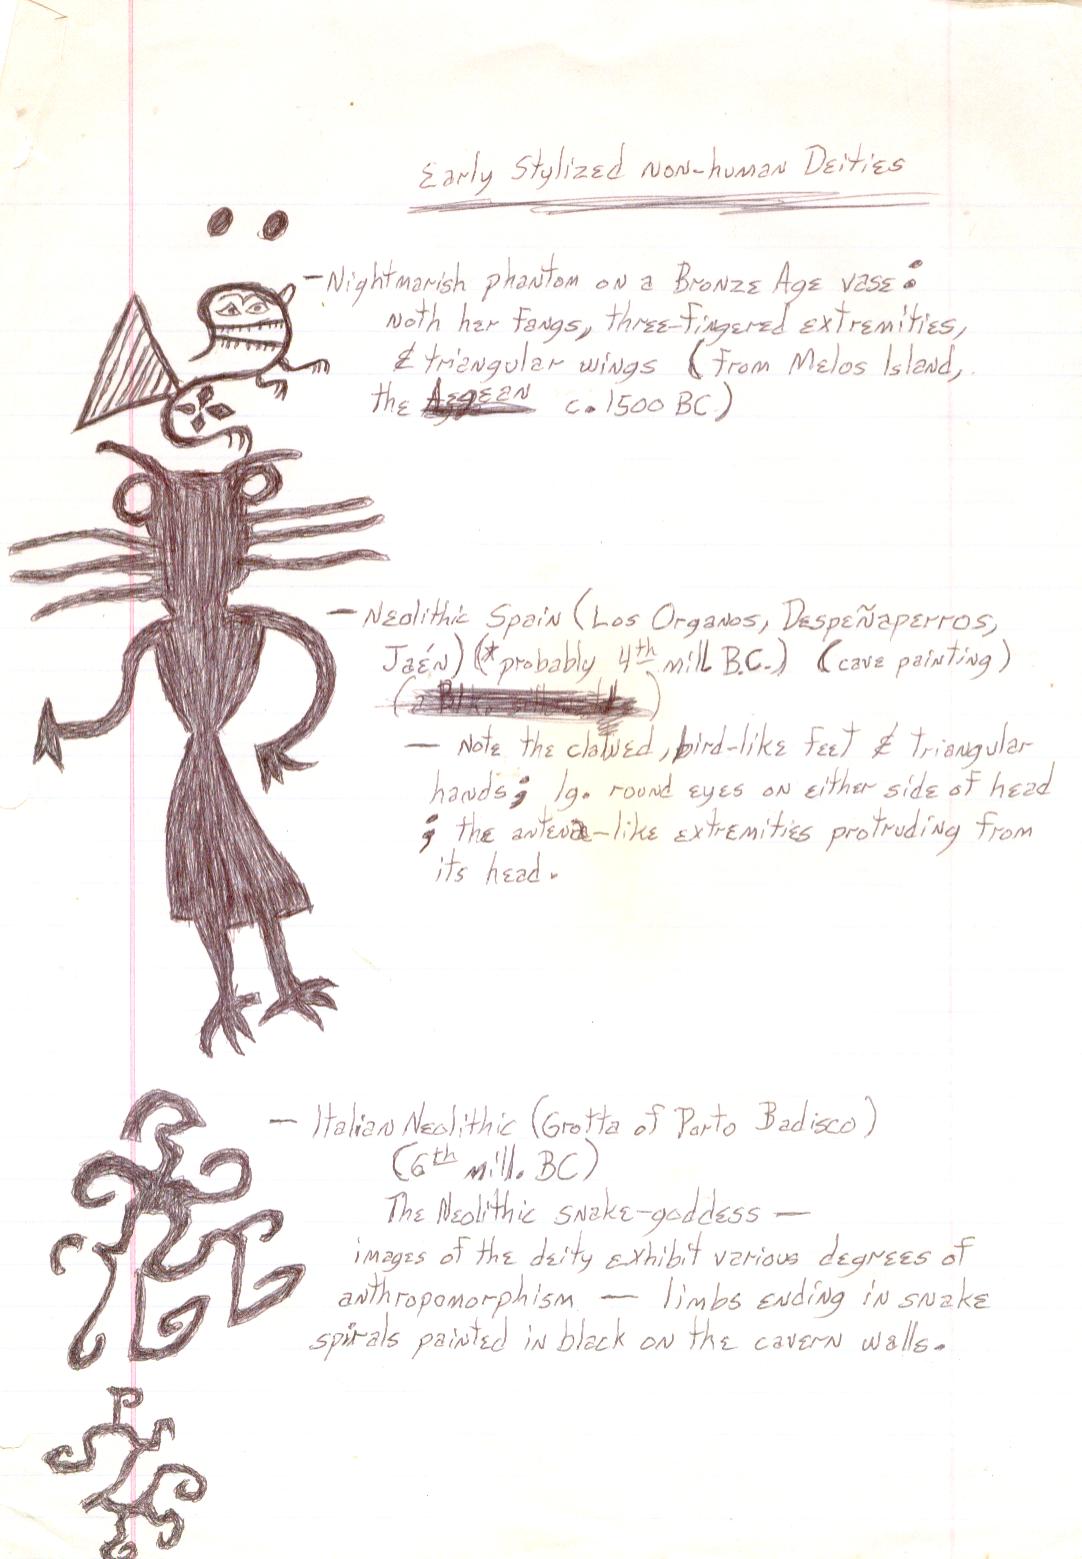 Early Stylized Non-human Deities
— Nightmarish phantom on a Bronze Age vase:
Noth her fangs, three-fingered extremities,
& triangular wings (from Melos Island,
the Aegean c. 1500 BC)
— Neolithic Spain (Los Organos, Despeñaperros,
Jaén) (*probably 4th mill B.C.) (cave painting)
— Note the clawed, bird-like feet & triangular
hands; lg. round eyes on either side of head
; the antena-like extremities protruding from
its head.
— Italian Neolithic (Grotta of Porto Badisco)
(6th mill. BC)
The Neolithic snake-goddess —
images of the deity exhibit various degrees of
anthropomorphism — limbs ending in snake
spirals painted in black on the cavern walls.